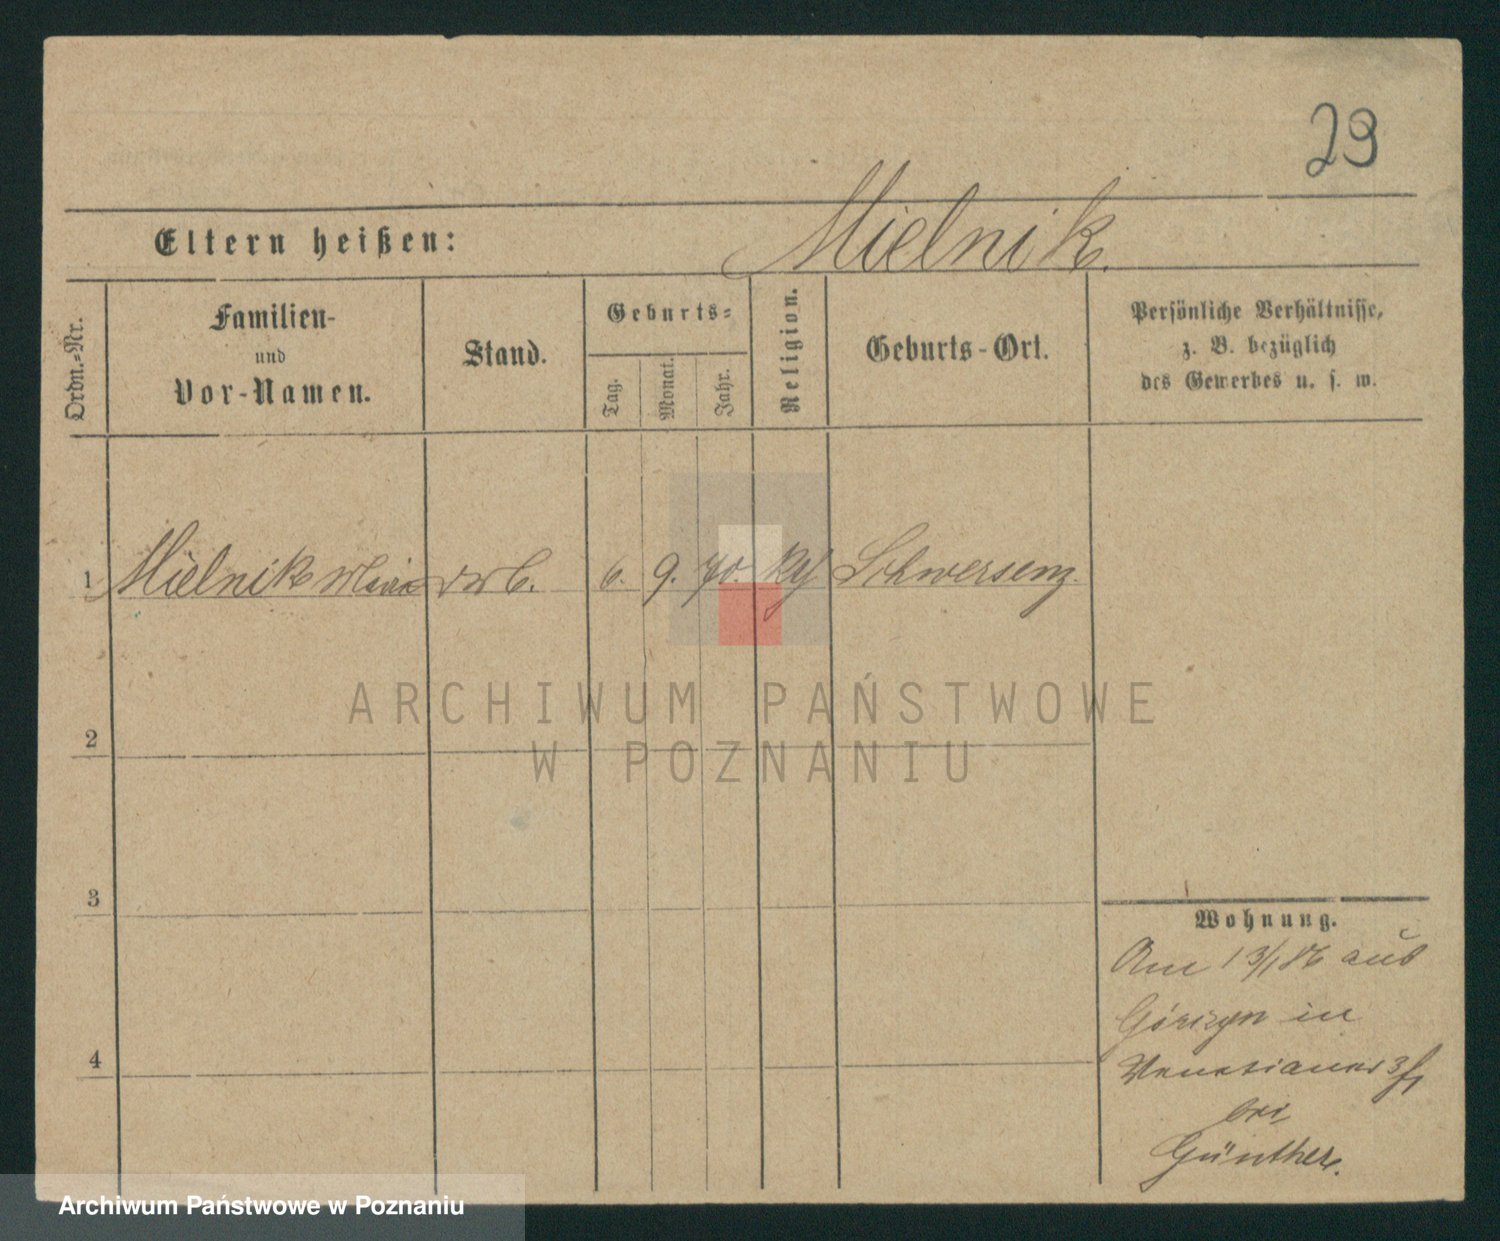 29
Eltern heißen: Mielnik.
Ordn.-Nr.
Familien-
und
Vor-Namen.
Stand.
Geburts-
Tag.
Monat.
Jahr.
Religion.
Geburts-Ort.
Persönliche Verhältnisse,
z. B. bezüglich
des Gewerbes u. s. w.
1 Mielnik Maria 6. 9. 70. Schwersenz.
ARCHIWUM PAŃSTWOWE
W POZNANIU
2
3
4
Wohnung.
Am 13/1 86 aus
in
Venetianer
bei
Günther.
Archiwum Państwowe w Poznaniu